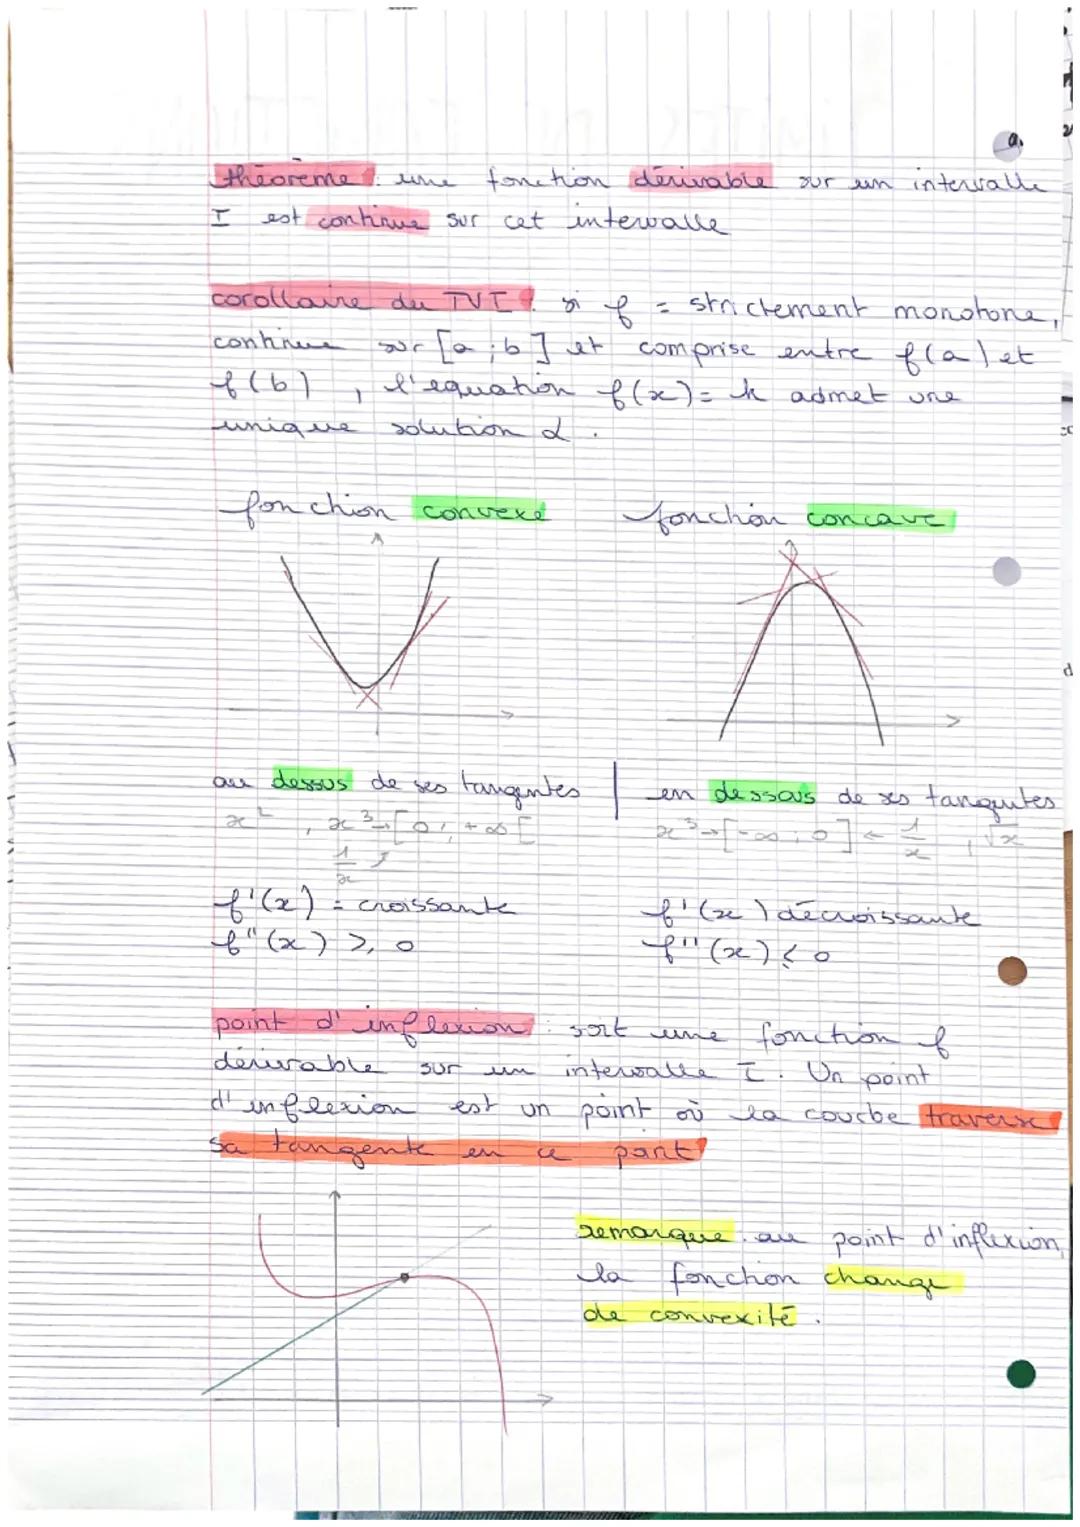 théorème : une fonction dérivable sur un intervalle
I est continue sur cet intervalle
corollaire du TVI : si f = strictement monotone,
continue sur [a ; b] et comprise entre f(a) et
f(b) , l'equation f(x) = k admet une
unique solution α .
fonction convexe
fonction concave
au dessus de ses tangentes | en dessous de ses tangentes
x² , x³→[0 ; +∞[
x³→[-∞ ; 0] ← 1/x , √x
1/x
f'(x) = croissante
f''(x) ≥ 0
f'(x) décroissante
f''(x) ≤ 0
point d'inflexion : soit une fonction f
dérivable sur un intervalle I. Un point
d'inflexion est un point où la courbe traverse
sa tangente en ce point
remarque : au point d'inflexion,
la fonction change
de convexité .